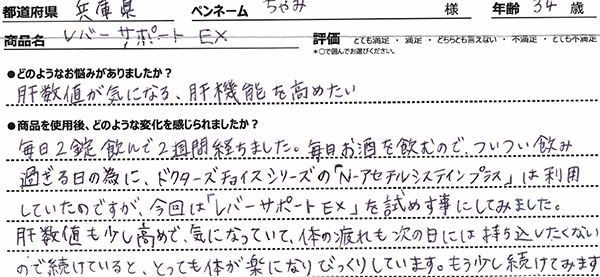 都道府県 兵庫県 ペンネーム ちゃみ 様 年齢 34 歳
商品名 レバーサポートEX 評価 とても満足 ・ 満足 ・ どちらとも言えない ・ 不満足 ・ とても不満足
*○で囲んでお選びください。
●どのようなお悩みがありましたか？
肝数値が気になる、肝機能を高めたい
●商品を使用後、どのような変化を感じられましたか？
毎日2錠飲んで2週間経ちました。毎日お酒を飲むので、ついつい飲み
過ぎる日の為に、ドクターズチョイスシリーズの「N-アセチルシステインプラス」は利用
していたのですが、今回は「レバーサポートEX」を試めす事にしてみました。
肝数値も少し高めで、気になっていて、体の疲れも次の日には持ち込したくない
ので続けていると、とっても体が楽になりびっくりしています。もう少し続けてみます